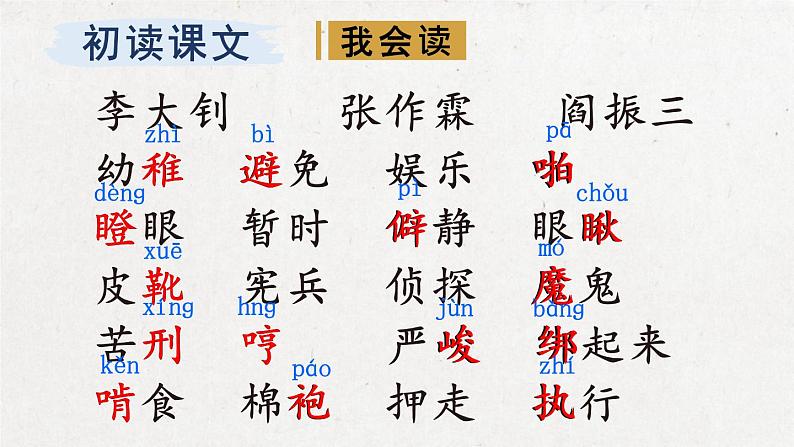 初读课文 我会读
李大钊 张作霖 阎振三
zhì bì pā
幼稚 避免 娱乐 啪
dèng pì chǒu
瞪眼 暂时 僻静 眼瞅
xuē mó
皮靴 宪兵 侦探 魔鬼
xíng hng jùn bǎng
苦刑 哼 严峻 绑起来
kěn páo zhí
啃食 棉袍 押走 执行